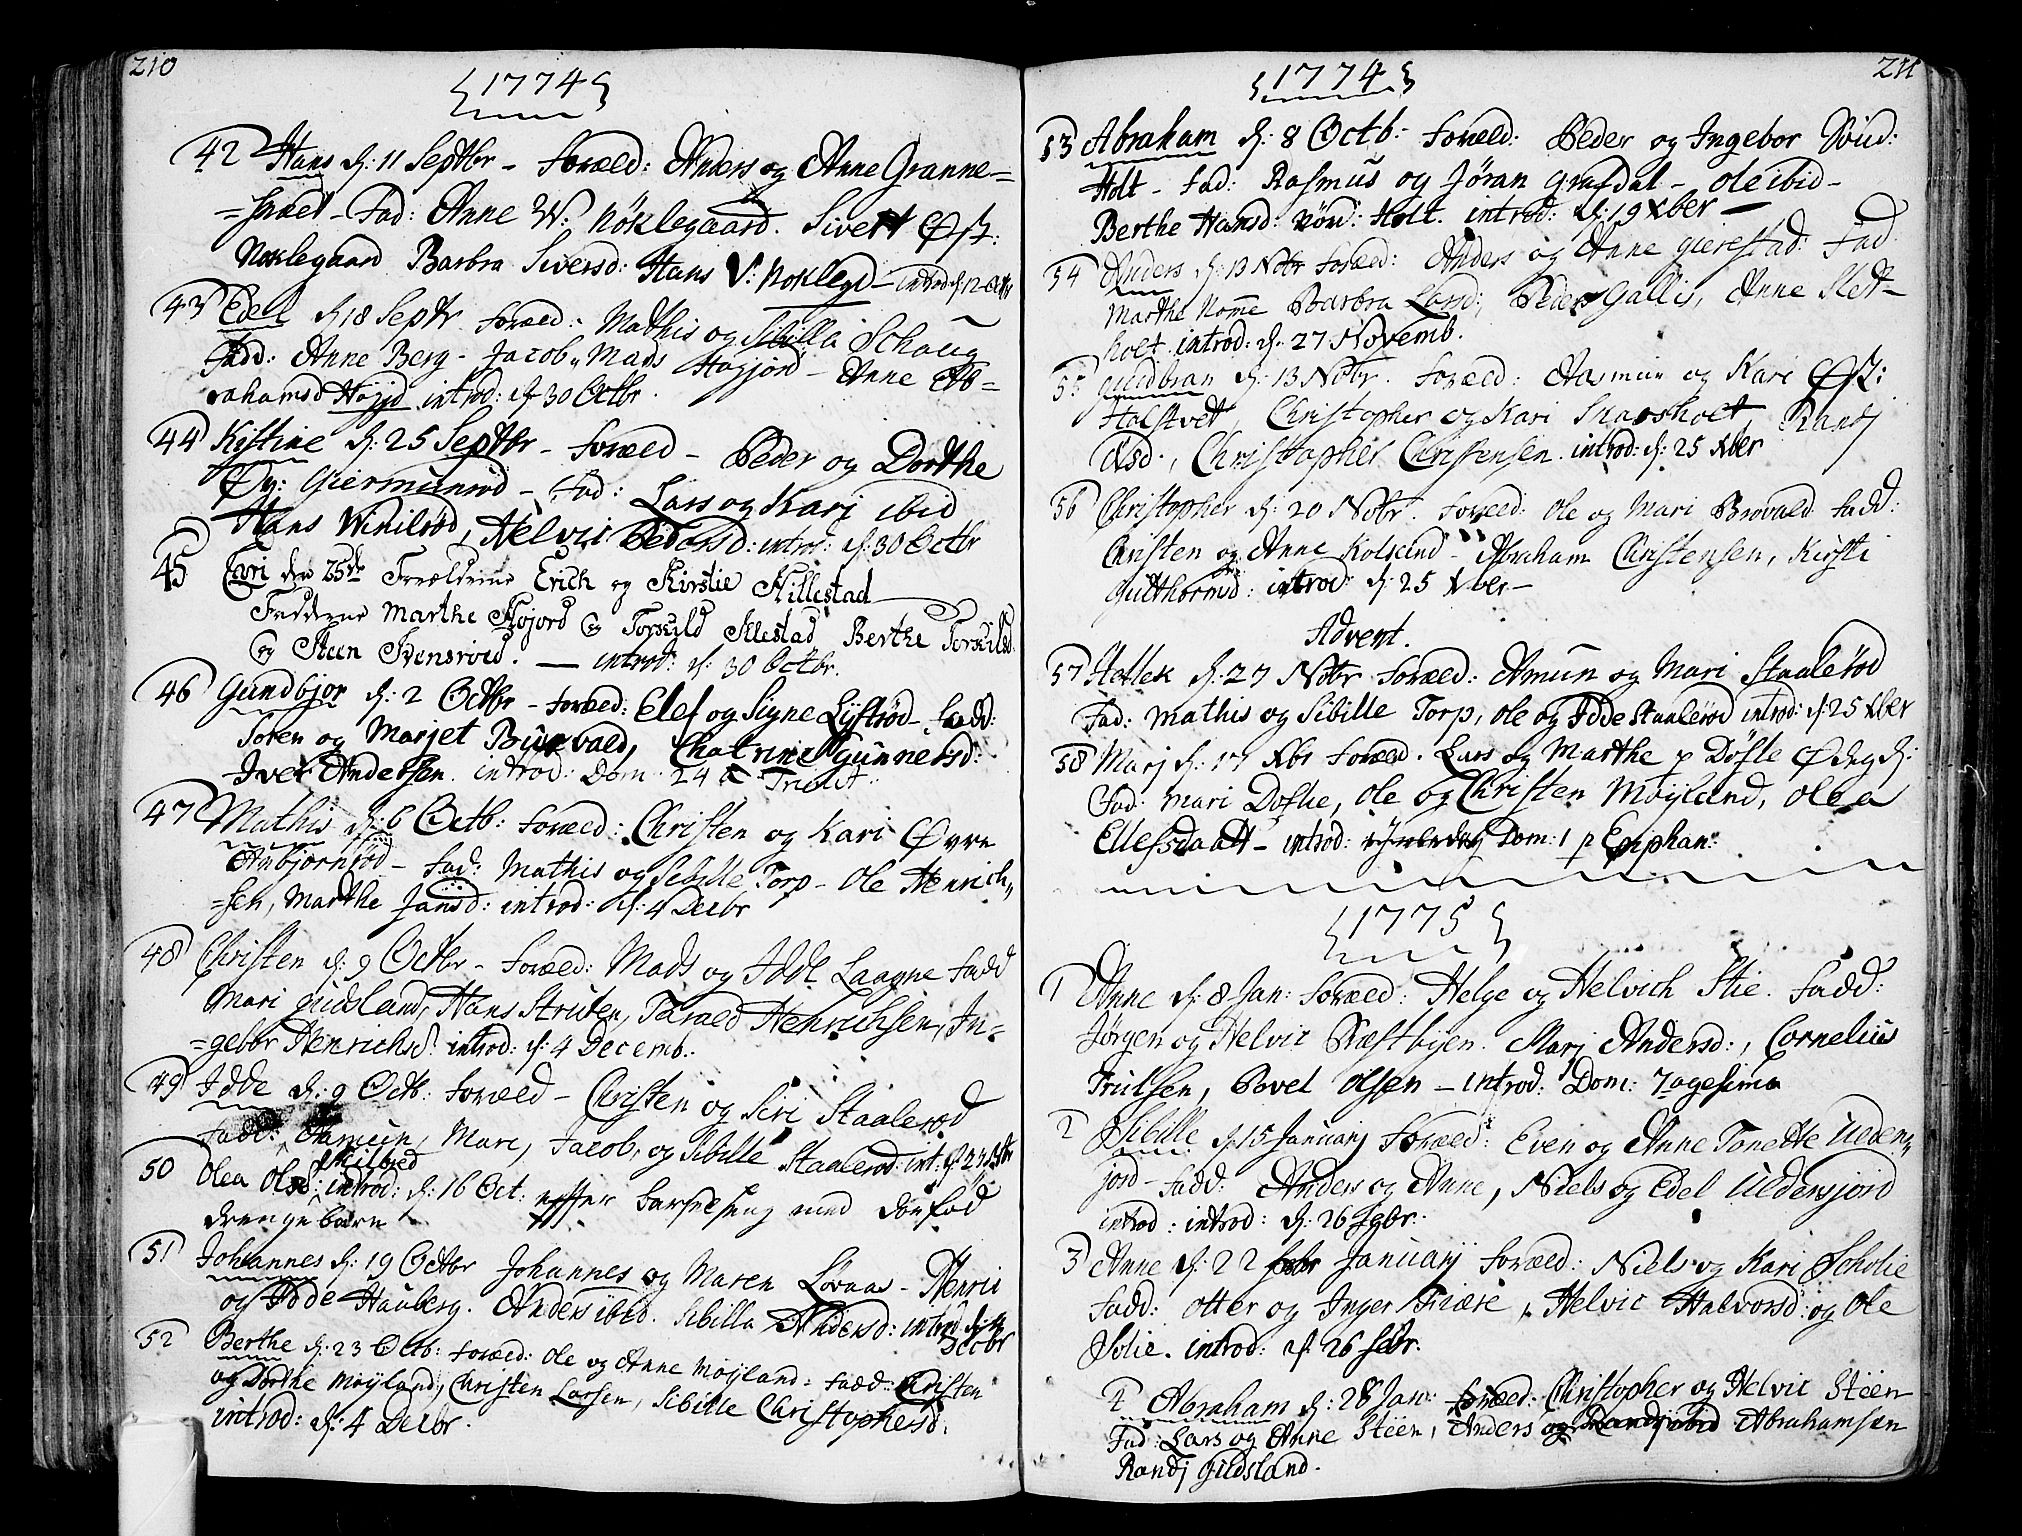 210
1774
42 Hans d: 11 Septbr - Foræld: Anders og Anne Granne=
=snæs - Fad: Anne W: Nöklegaard. Sivert Øst:
Noklegaard Barbra Siversd: Hans V: Noklegd - introd d: 12 Octbr
43 Edel d 18 Septr Foræld: Mathis og Sibilla Schaug
Fadd: Anne Berg - Jacob, Mads Høyjord - Anne Ab=
rahamsd Høyjd introd: d: 30 Octbr.
44 Kistine d: 25 Septbr - Foræld - Peder og Dorthe
Øv: Giermunrød - Fad: Lars og Kari ibid
Hans Winilrød, Helvic Pedersd: introd: d: 30 Octbr
45 Cari den 25de Forældrene Erich og Kirstie Hillestad
Faddrne Marthe Højord og Torkild Illestad Berthe Torkilsd:
og Steen Svensroed. — introd: d: 30 Octbr.
46 Gundbjor d: 2 Octbr - Foræd: Elef og Signe Lystrød Fadd:
Soren og Marjet Burvald, Chatrine Gunnersd:
Iver Andersen. introd: Dom. 24 a Trinit:
47 Mathis d: 6 Octb: Foræld: Christen og Kari Øvre
Aubjornrød - Fad: Mathis og Sibille Torp - Ole Henrich=
=sen, Marthe Jansd: introd: d: 4 Decbr
48 Christen d: 9 Octbr - Foræld: Mads og Idde Laagne Fadd
Mari Gudsland, Hans Struten, Tarald Henrichsen, In=
=gebor Henrichsd: introd: d: 4 Decemb.
49 Idde d: 9 Octb: Foræld - Christen og Siri Staalerød
Fadd: Hamun, Mari, Jacob, og Sibille Staalerød: int: d: 27 Nobr
50 Olea Olsd: Skilbred introd: d: 16 Oct: efter barselseng med dønfød
drengebarn
51 Johannes d: 19 Octbr Johannes og Maren Lövaas - Henric
og Idde Hauberg. Anders ibid. Sibilla Andersd: introd d: 4
Decbr
52 Berthe d: 23 Octb: Foræld: Ole og Anne Møyland: Fadd: Christen
og Dorthe Møyland, Christen Larsen, Sibille Christophersd.
introd: d: 4 Decbr.
211
1774
53 Abraham d: 8 Octb: - Foræld: Peder og Ingebor Söud:
Holt - Fad: Rasmus og Jöran Grafdal - Ole ibid -
Berthe Hansd: Nörd: Holt. introd: d: 19 Xber —
54 Anders d: 13 Nobr Foræld: Anders og Anne Gierestad: Fad
Marthe Nomme Barbra Land, Peder Gallis, Anne Slet-
holt introd: d: 27 Novemb.
55 Gudbran d: 13 Nobr. Foræld: Aasmun og Kari Øst:
Holstvet, Christopher og Kari Snarsholt, Randj
Olsd., Christopher Christensen. introd: d: 25 Xber
56 Christopher d: 20 Nobr. Foræld: Ole og Mari Brovald Fadd:
Christen og Anne Kolsrind - Abraham Christensen, Kirsti
Gutthormsd: introd: d: 25 Xber -
Advent.
57 Hellek d: 27 Nobr Foræld: Amun og Mari Staalerød
Fad: Mathis og Sibille Torp, Ole og Idde Staalerød introd: d: 25 Xber
58 Marj d: 17 Xbr Foræld. Lars og Marthe p Döfle Ødegd:
Fad: Mari Dofle, Ole og Christen Møyland, Olea
Ellefsdaatt - introd: Dom: 1 p Epiphan:
1775
1 Anne d: 8 Jan: Foræld: Helge og Helvich Stie. Fadd:
Jörgen og Helvic Præstbyen. Marj Andersd:, Cornelius
Trulsen, Povel Olsen - introd. Dom: 7agesima
2 Sibille d: 15 Januarj Foræld: Even og Anne Tonette Ueden=
jord - Fadd: Anders og Anne, Niels og Edel Uldensjord
introd: introd: d: 26 Fgbr.
3 Anne d: 22 Januarij Foræld: Niels og Kari Scholie
Fadd: Otter og Inger Friære, Helvic Halvorsd: og Ole
Solie. introd: d: 26 Febr.
4 Abraham d: 28 Jan: Foræld: Christopher og Helvic Steen
Fad: Lars og Anne Steen, Anders Abrahamsen
Randj Gudsland.